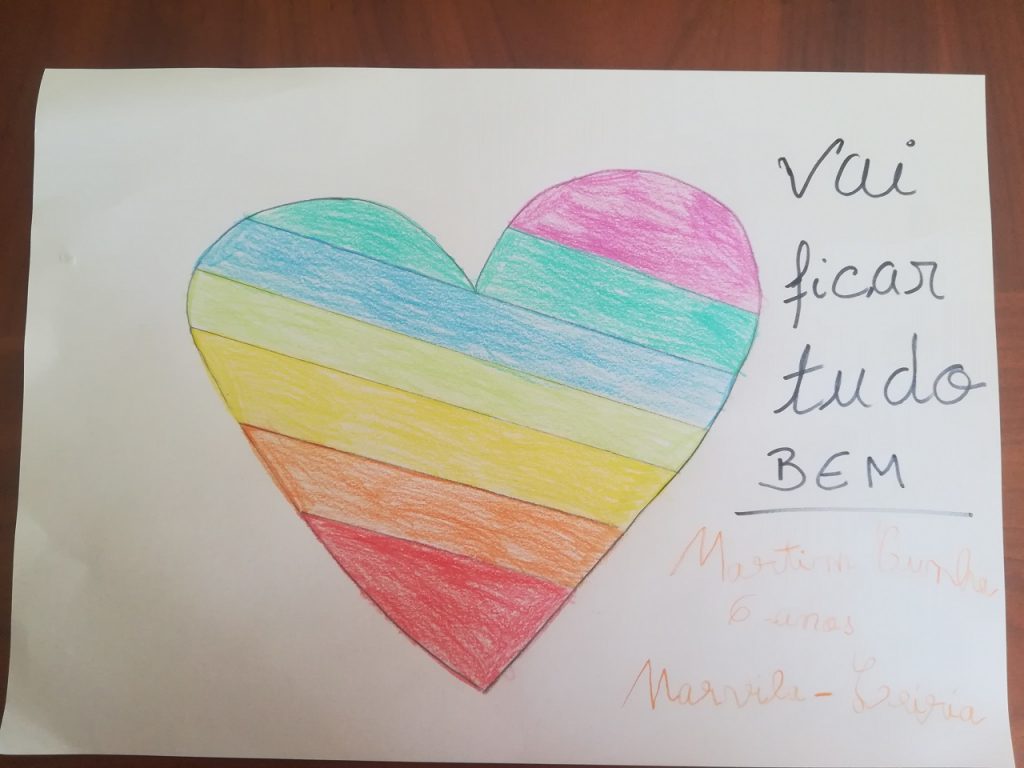 Vai
ficar
tudo
BEM
Martim Cunha
6 anos
Marvila - Leiria